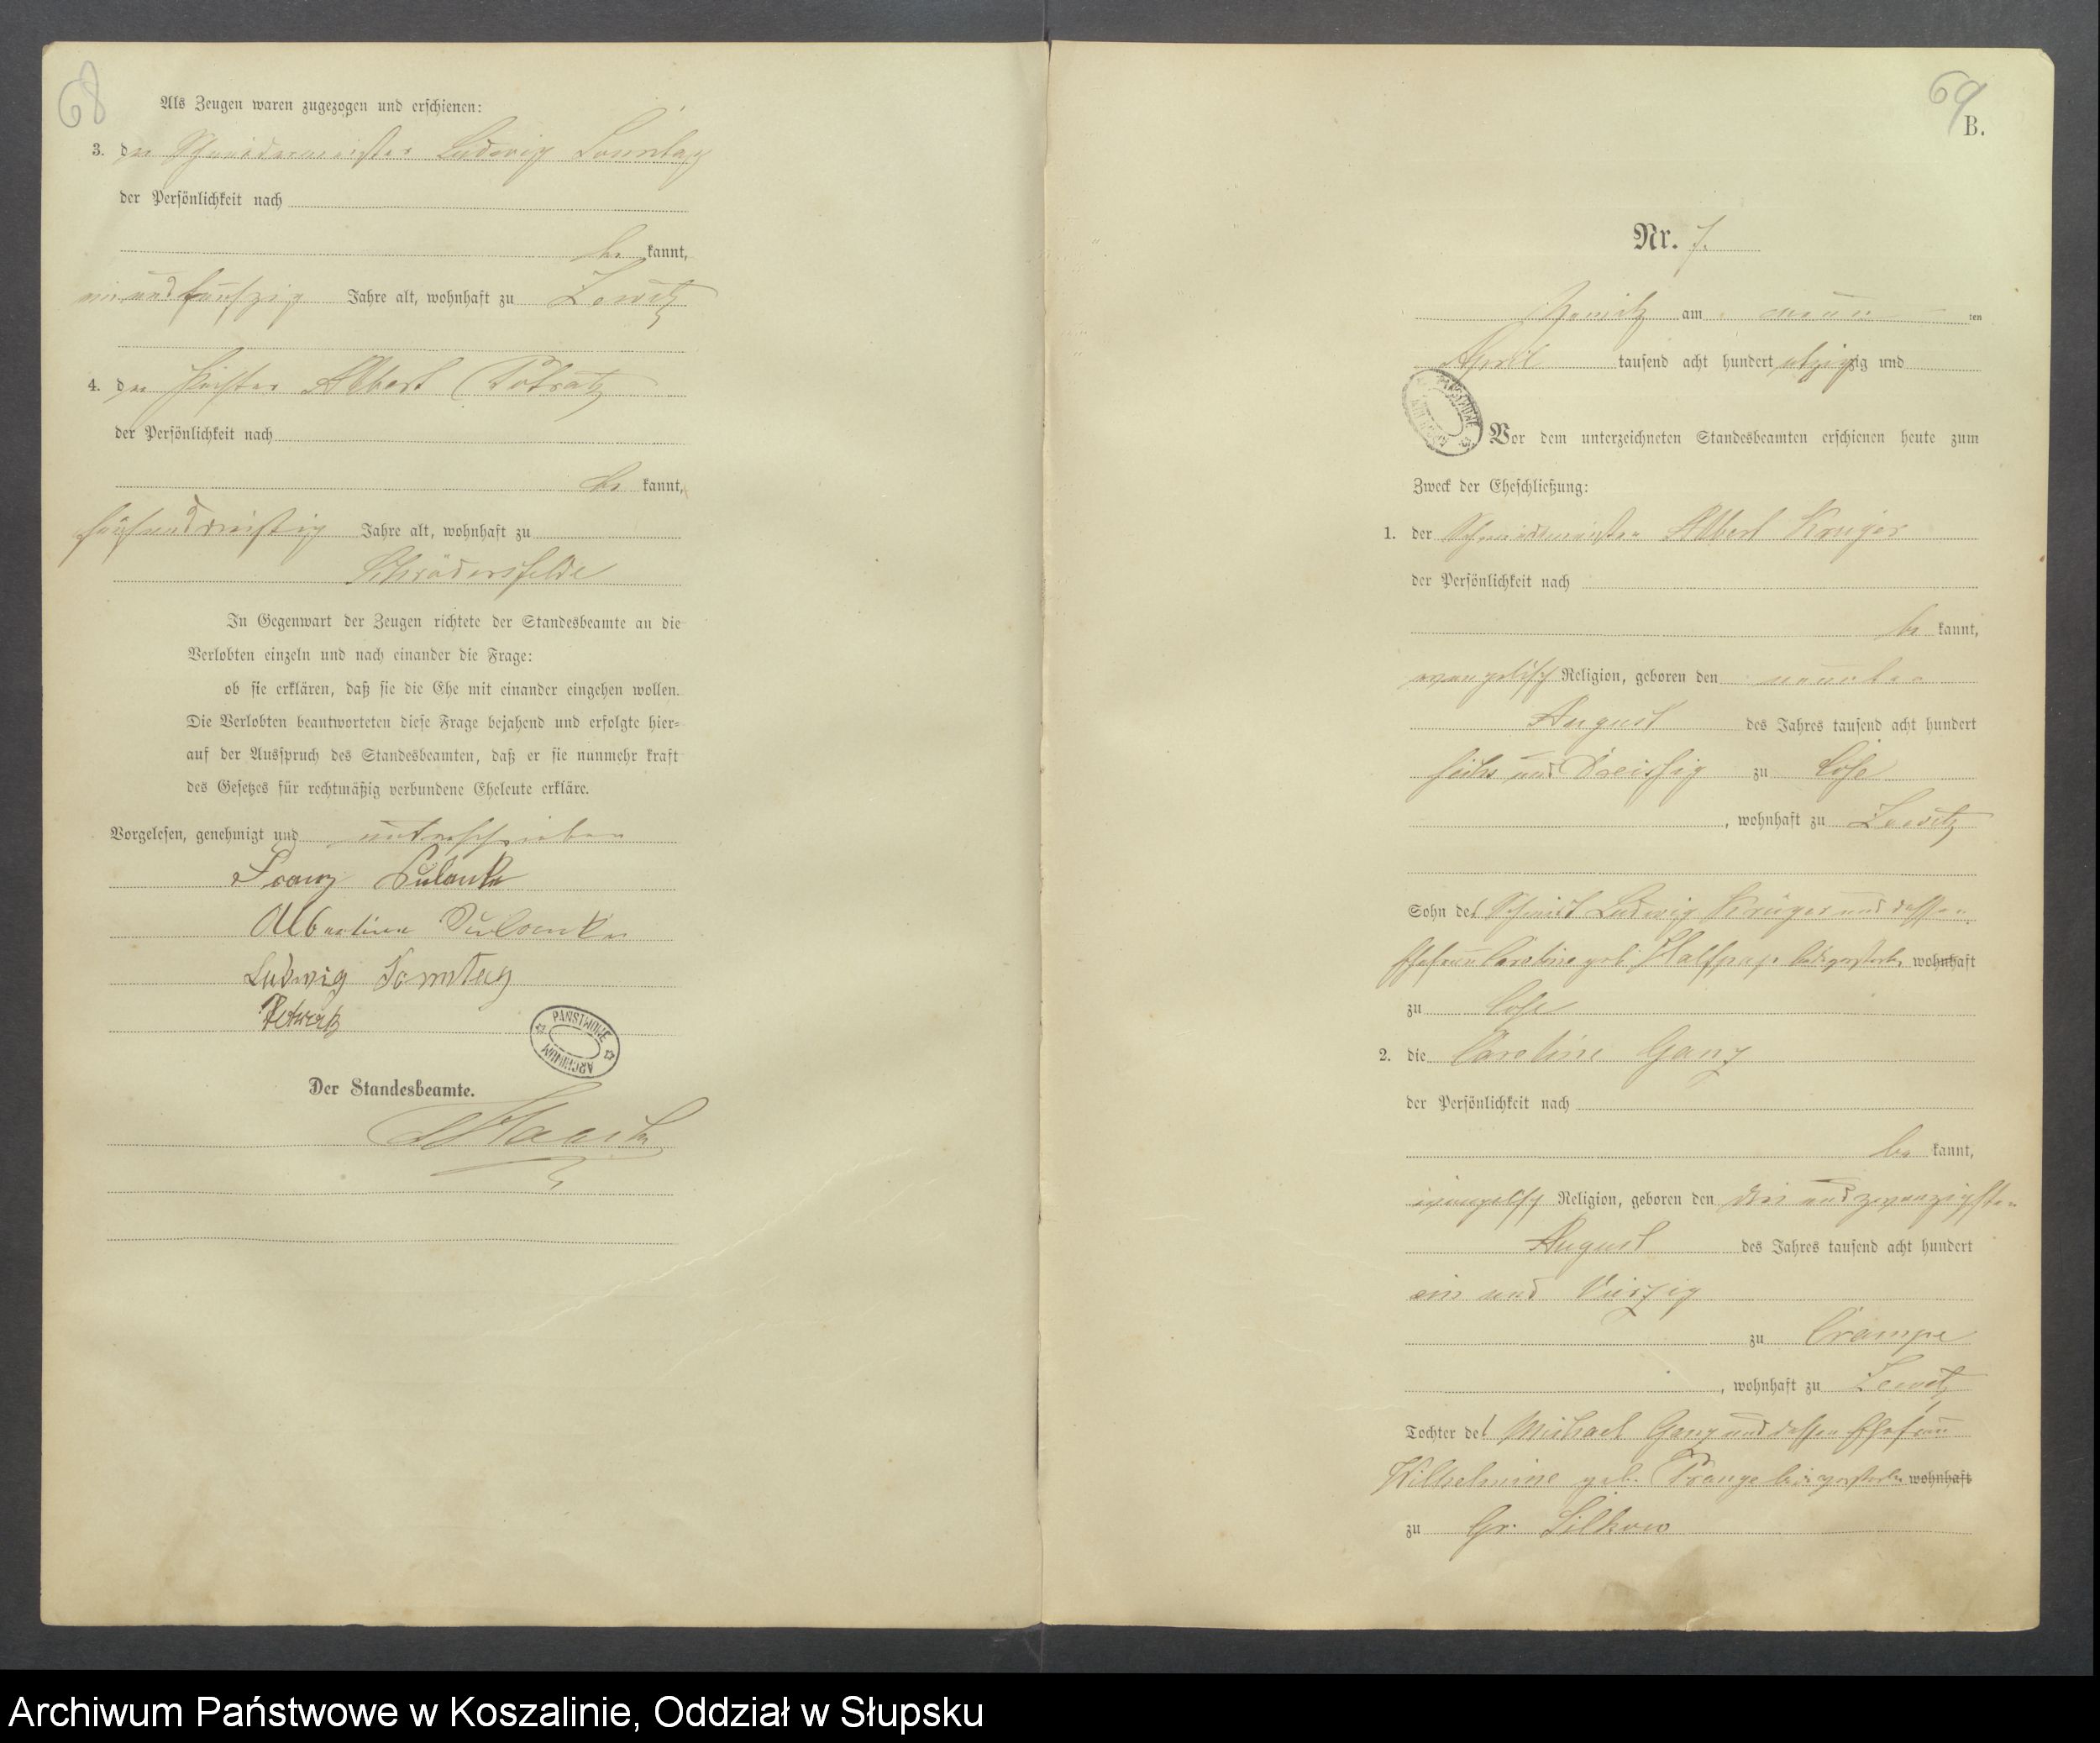 68
Als Zeugen waren zugezogen und erschienen:
3. der Schneidermeister Ludwig Sonntag
der Persönlichkeit nach
be kannt,
ein und fünfzig Jahre alt, wohnhaft zu Zewitz
4. der Albert Potratz
der Persönlichkeit nach
be kannt,
fünfunddreißig Jahre alt, wohnhaft zu
Schrödersfelde
In Gegenwart der Zeugen richtete der Standesbeamte an die
Verlobten einzeln und nach einander die Frage:
ob sie erklären, daß sie die Ehe mit einander eingehen wollen.
Die Verlobten beantworteten diese Frage bejahend und erfolgte hier-
auf der Ausspruch des Standesbeamten, daß er sie nunmehr kraft
des Gesetzes für rechtmäßig verbundene Eheleute erkläre.
Vorgelesen, genehmigt und unterschrieben
Franz
Albertine
Ludwig Sonntag
PAŃSTWOWE ARCHIWUM
Der Standesbeamte.
69
B.
Nr. 7.
am neun ten
April tausend acht hundert achtzig zig und
PAŃSTWOWE ARCHIWUM
Vor dem unterzeichneten Standesbeamten erschienen heute zum
Zweck der Eheschließung:
1. der Schmiedemeister Albert Krüger
der Persönlichkeit nach
be kannt,
evangelisch Religion, geboren den neunten
August des Jahres tausend acht hundert
sechs und dreissig zu Cose
, wohnhaft zu Zewitz
Sohn des Schmied Ludwig Krüger und dessen
Ehefrau Caroline geb. Halfpap beide verstorben wohnhaft
zu Cose
2. die Caroline Ganz
der Persönlichkeit nach
be kannt,
evangelisch Religion, geboren den drei und zwanzigsten
August des Jahres tausend acht hundert
ein und Vierzig
zu Crampe
, wohnhaft zu Zewitz
Tochter des Michael Ganz und dessen Ehefrau
Wilhelmine geb. Prange beide verstorben wohnhaft
zu Gr. Silkow
Archiwum Państwowe w Koszalinie, Oddział w Słupsku